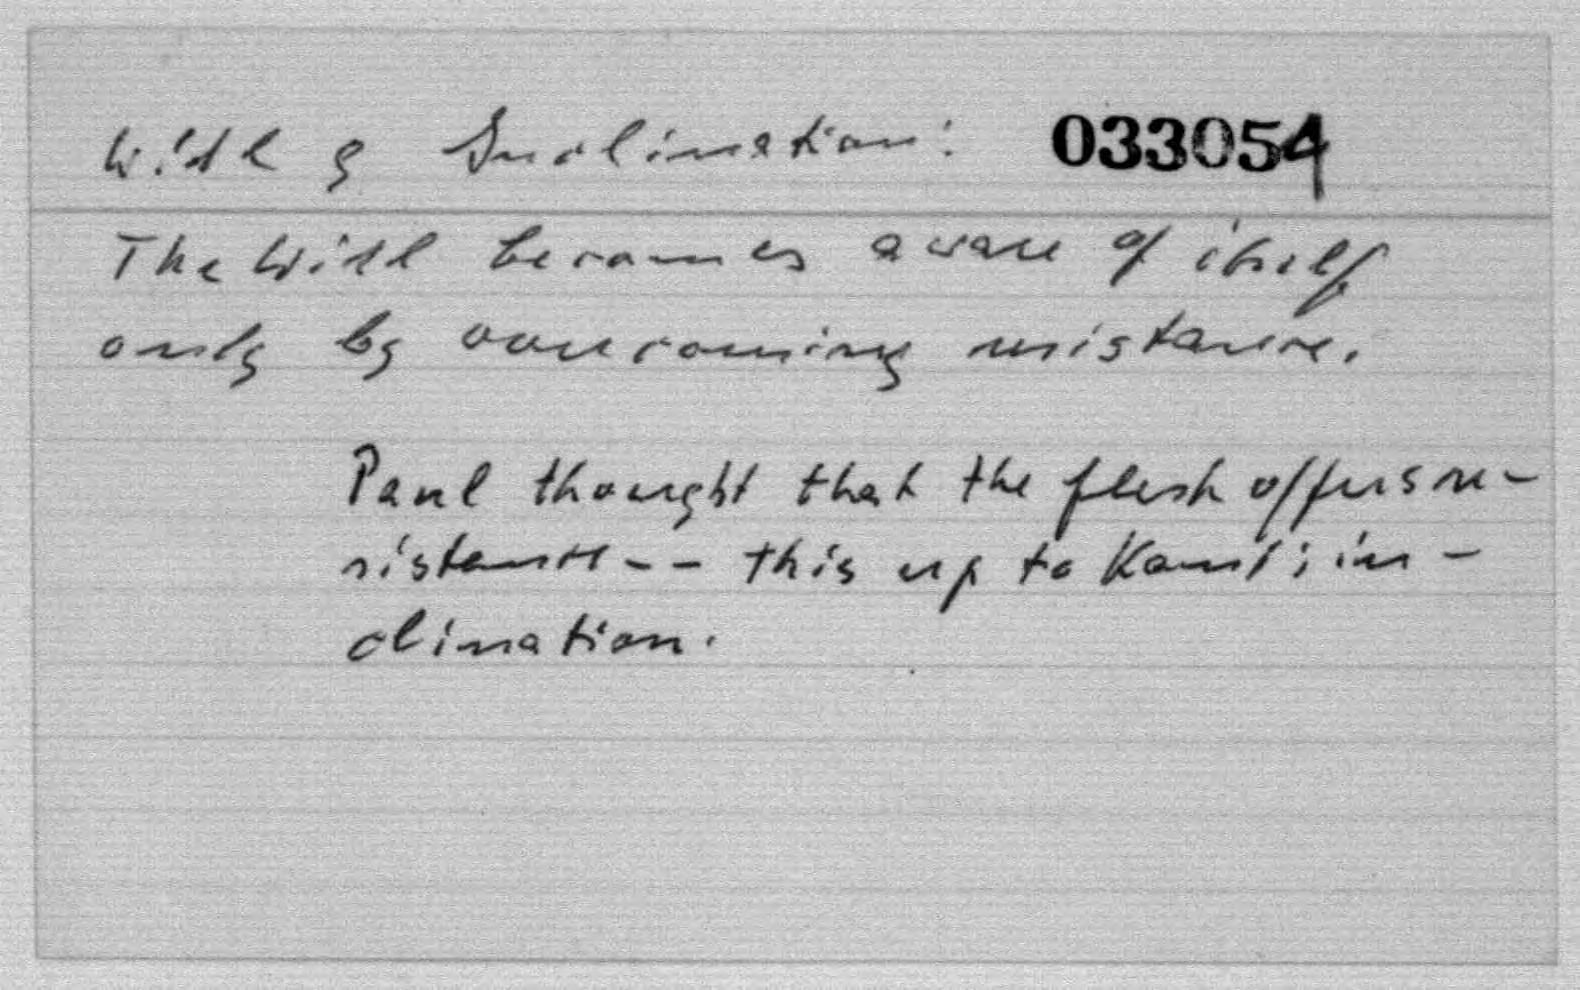 Will & Inclination: 033054
The Will becomes aware of itself
only by overcoming resistance.
Paul thought that the flesh offers re-
sistance -- this up to Kant; in-
clination.